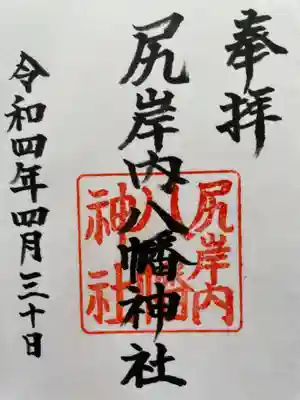 奉拝
尻岸内八幡神社
尻岸内
八幡
神社
令和四年四月三十日